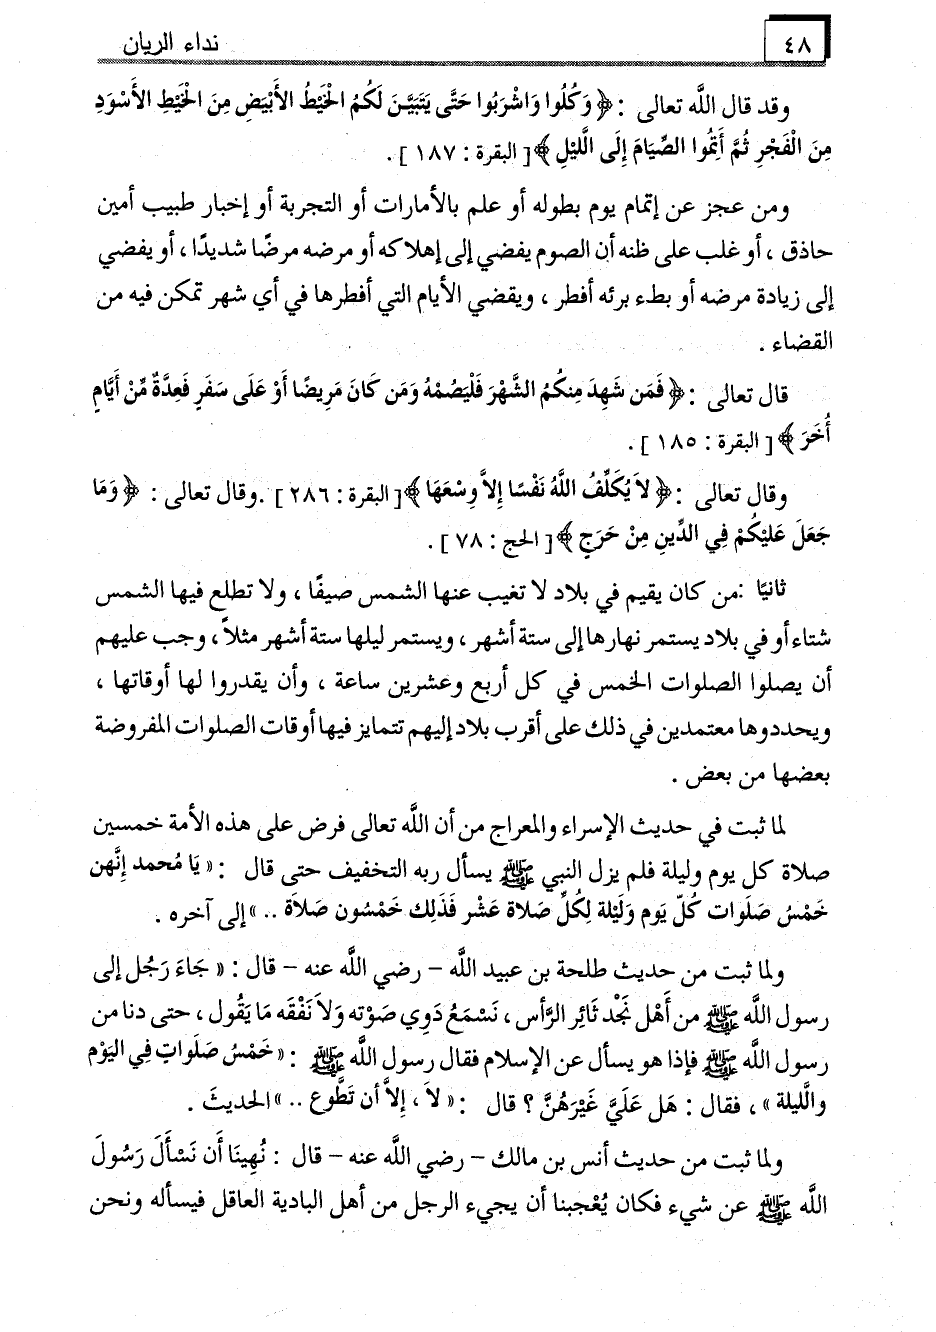 ٤٨ نداء الريان
وقد قال اللَّه تعالى : ﴿ وَكُلُوا وَاشْرَبُوا حَتَّى يَتَبَيَّنَ لَكُمُ الْخَيْطُ الأَبْيَضِ مِنَ الْخَيْطِ الأَسْوَدِ
مِنَ الْفَجْرِ ثُمَّ أَتِمُّوا الصِّيَامَ إِلَى اللَّيْلِ ﴾ [ البقرة : ١٨٧ ] .
ومن عجز عن إتمام يوم بطوله أو علم بالأمارات أو التجربة أو إخبار طبيب أمين
حاذق ، أو غلب على ظنه أن الصوم يفضي إلى إهلاكه أو مرضه مرضًا شديدًا ، أو يفضي
إلى زيادة مرضه أو بطء برئه أفطر ، ويقضي الأيام التي أفطرها في أي شهر تمكن فيه من
القضاء .
قال تعالى : ﴿ فَمَن شَهِدَ مِنكُمُ الشَّهْرَ فَلْيَصُمْهُ وَمَن كَانَ مَرِيضًا أَوْ عَلَى سَفَرٍ فَعِدَّةٌ مِّنْ أَيَّامٍ
أُخَرَ ﴾ [ البقرة : ١٨٥ ] .
وقال تعالى : ﴿ لاَ يُكَلِّفُ اللَّهُ نَفْسًا إِلاَّ وِسْعَهَا ﴾ [ البقرة : ٢٨٦ ] .وقال تعالى : ﴿ وَمَا
جَعَلَ عَلَيْكُمْ فِي الدِّينِ مِنْ حَرَجٍ ﴾ [ الحج : ٧٨ ] .
ثانيًا :من كان يقيم في بلاد لا تغيب عنها الشمس صيفًا ، ولا تطلع فيها الشمس
شتاء أو في بلاد يستمر نهارها إلى ستة أشهر ، ويستمر ليلها ستة أشهر مثلاً ، وجب عليهم
أن يصلوا الصلوات الخمس في كل أربع وعشرين ساعة ، وأن يقدروا لها أوقاتها ،
ويحددوها معتمدين في ذلك على أقرب بلاد إليهم تتمايز فيها أوقات الصلوات المفروضة
بعضها من بعض .
لما ثبت في حديث الإسراء والمعراج من أن اللَّه تعالى فرض على هذه الأمة خمسين
صلاة كل يوم وليلة فلم يزل النبي ﷺ يسأل ربه التخفيف حتى قال : « يَا مُحمد إِنَّهن
خَمْسُ صَلَوات كُلّ يَوم وَلَيْلة لِكُلِّ صَلاة عَشْر فَذَلِك خَمْسُون صَلاَة .. » إلى آخره .
ولما ثبت من حديث طلحة بن عبيد اللَّه – رضي اللَّه عنه – قال : « جَاءَ رَجُل إلى
رسول اللَّه ﷺ من أَهْل نَجْد ثَائِر الرَّأس ، نَسْمَعُ دَوِي صَوْته وَلاَ نَفْقَه مَا يَقُول ، حتى دنا من
رسول اللَّه ﷺ فإذا هو يسأل عن الإسلام فقال رسول اللَّه ﷺ : « خَمْسُ صَلَواتٍ فِي اليَوْم
والَّليلة » ، فقال : هَل عَلَيَّ غَيْرَهُنَّ ؟ قال : « لاَ ، إِلاَّ أن تَطَّوع .. » الحديثَ .
ولما ثبت من حديث أنس بن مالك – رضي اللَّه عنه – قال : نُهِينَا أَن نَسْأَلَ رَسُولَ
اللَّه ﷺ عن شيء فكان يُعْجبنا أن يجيء الرجل من أهل البادية العاقل فيسأله ونحن